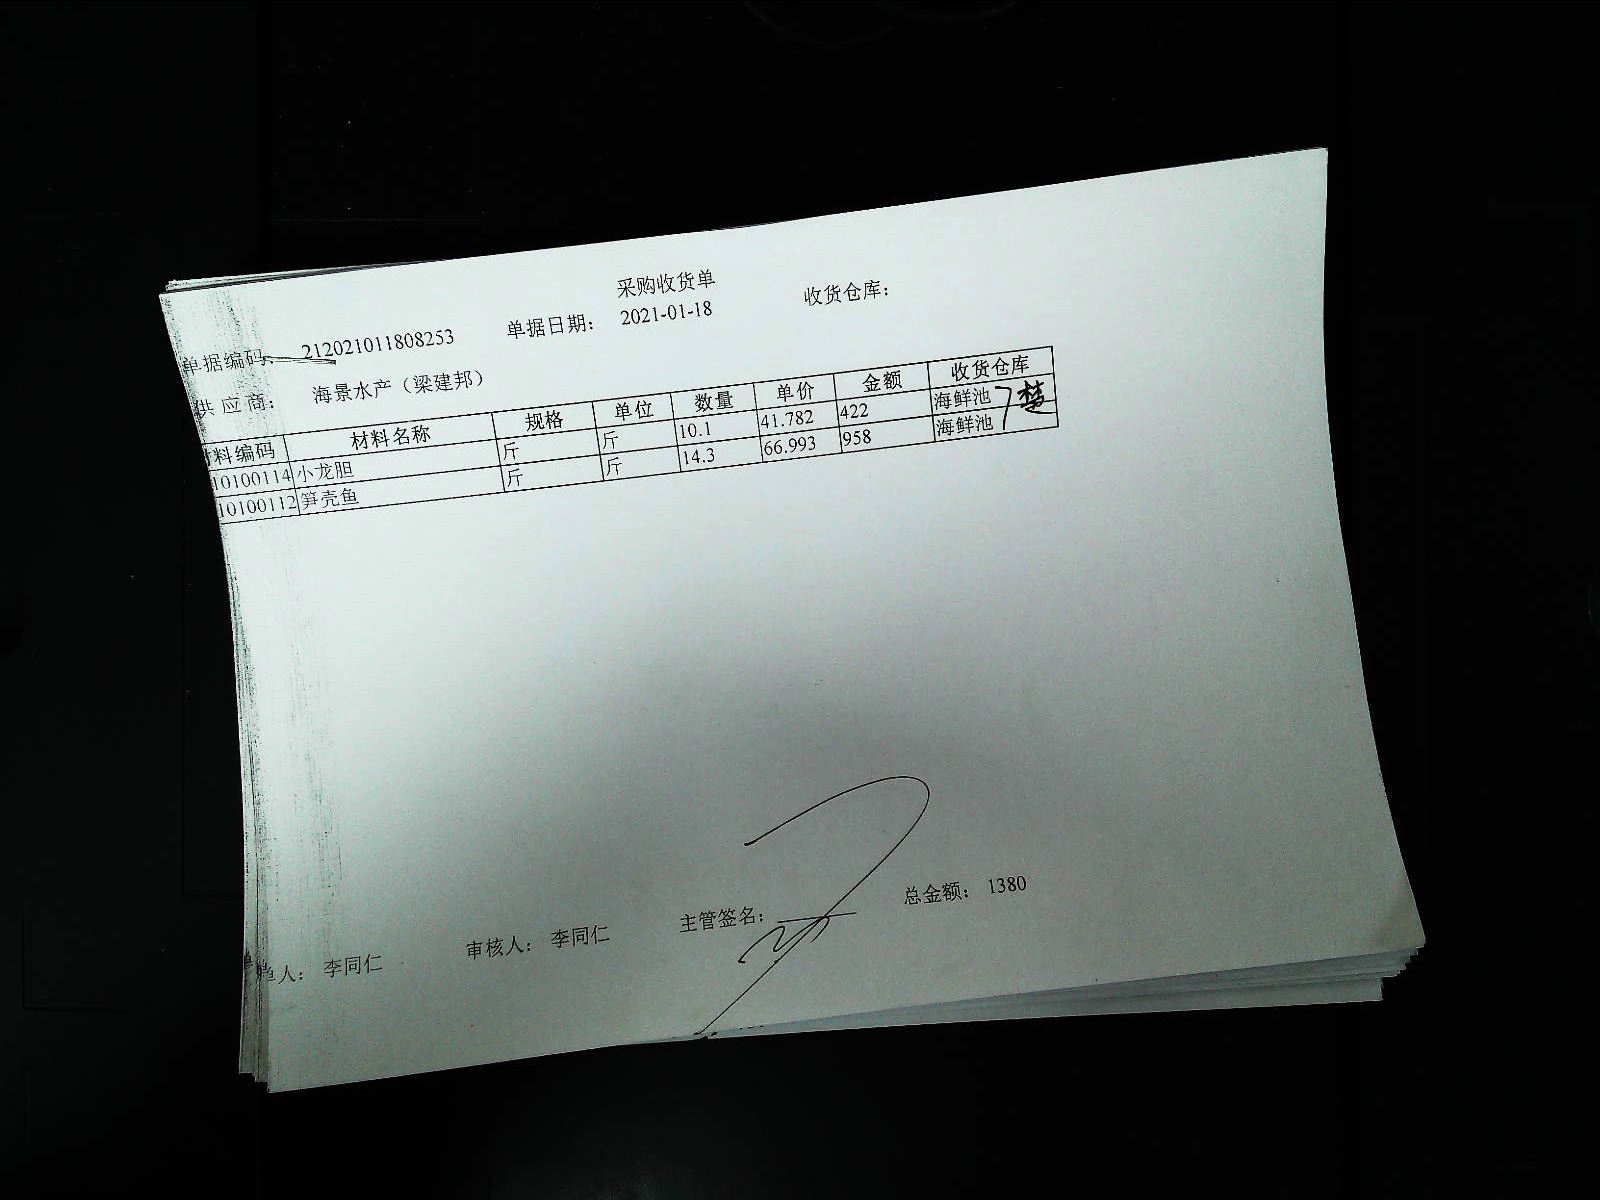 采购收货单
单据编码: 212021011808253 单据日期: 2021-01-18 收货仓库:
供应商: 海景水产（梁建邦）
材料编码 材料名称 规格 单位 数量 单价 金额 收货仓库
10100114 小龙胆 斤 斤 10.1 41.782 422 海鲜池
10100112 笋壳鱼 斤 斤 14.3 66.993 958 海鲜池
单人: 李同仁 审核人: 李同仁 主管签名: 总金额: 1380